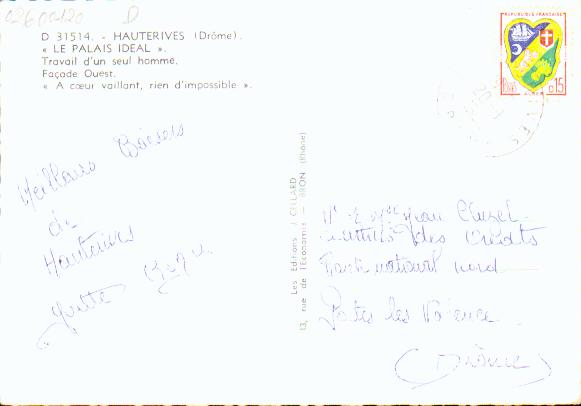 02600120 D
D 31514. - HAUTERIVES (Drôme).
« LE PALAIS IDEAL ».
Travail d'un seul homme.
Façade Ouest.
« A cœur vaillant, rien d'impossible ».
REPUBLIQUE FRANÇAISE
POSTES 0,15
Meilleurs Baisers
de
Hauterives
Les Editions J. CELLARD
13, rue de l'Economie - BRON (Rhône)
Mr & Mme Jean
des Crédits
nord
Portes les Valence
(Drôme)